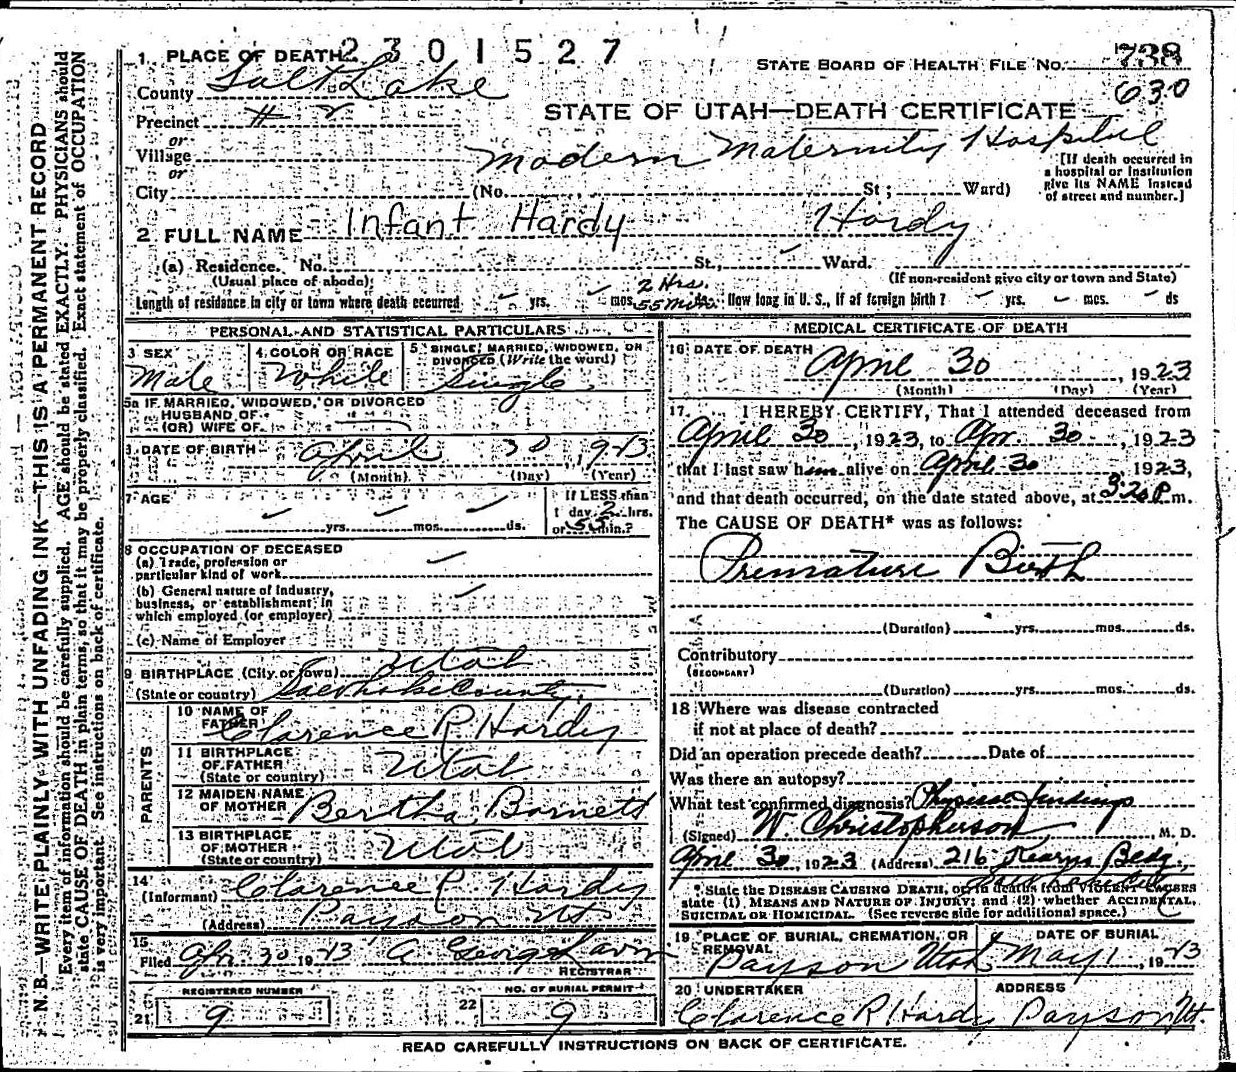 1. PLACE OF DEATH 2301527
STATE BOARD OF HEALTH FILE NO. 738
County Salt Lake
630
STATE OF UTAH—DEATH CERTIFICATE
Precinct # 2
or
Village
Modern Maternity Hospital
or
City (No. St; Ward)
[If death occurred in
a hospital or institution
give its NAME instead
of street and number.]
2 FULL NAME Infant Hardy Hardy
(a) Residence. No. St., Ward.
(Usual place of abode) (If non-resident give city or town and State)
Length of residence in city or town where death occurred yrs. mos. 2 Hrs. 55 Min. ds. How long in U. S., if of foreign birth? yrs. mos. ds
PERSONAL AND STATISTICAL PARTICULARS
3 SEX Male
4 COLOR OR RACE White
5 SINGLE, MARRIED, WIDOWED, OR
DIVORCED (Write the word) Single
5a IF MARRIED, WIDOWED, OR DIVORCED
HUSBAND OF
(OR) WIFE OF
6 DATE OF BIRTH April 30, 1923
(Month) (Day) (Year)
7 AGE yrs. mos. ds.
If LESS than
1 day 2 hrs.
or 55 min.?
8 OCCUPATION OF DECEASED
(a) Trade, profession or
particular kind of work
(b) General nature of industry,
business, or establishment in
which employed (or employer)
(c) Name of Employer
9 BIRTHPLACE (City or Town) Utah
(State or country) Salt Lake County
PARENTS
10 NAME OF
FATHER Clarence R. Hardy
11 BIRTHPLACE
OF FATHER
(State or country) Utah
12 MAIDEN NAME
OF MOTHER Bertha Barnett
13 BIRTHPLACE
OF MOTHER
(State or country) Utah
14
(Informant) Clarence R. Hardy
(Address) Payson Ut
15
Filed Apr. 30 1923 A. George
REGISTRAR
REGISTERED NUMBER
21 9
NO. OF BURIAL PERMIT
22 9
MEDICAL CERTIFICATE OF DEATH
16 DATE OF DEATH April 30, 1923
(Month) (Day) (Year)
17. I HEREBY CERTIFY, That I attended deceased from
April 30, 1923, to Apr. 30, 1923
that I last saw him alive on April 30, 1923,
and that death occurred, on the date stated above, at 3:20 P.m.
The CAUSE OF DEATH* was as follows:
Premature Birth
(Duration) yrs. mos. ds.
Contributory
(SECONDARY)
(Duration) yrs. mos. ds.
18 Where was disease contracted
if not at place of death?
Did an operation precede death? Date of
Was there an autopsy?
What test confirmed diagnosis? Physical findings
(Signed) W. Christopherson, M. D.
April 30, 1923 (Address) 216 Kearns Bldg.,
Salt Lake City
*State the DISEASE CAUSING DEATH, or in deaths from VIOLENT CAUSES
state (1) MEANS AND NATURE OF INJURY; and (2) whether ACCIDENTAL,
SUICIDAL OR HOMICIDAL. (See reverse side for additional space.)
19 PLACE OF BURIAL, CREMATION, OR
REMOVAL Payson Utah
DATE OF BURIAL
May 1, 1923
20 UNDERTAKER Clarence R Hardy
ADDRESS Payson Ut.
READ CAREFULLY INSTRUCTIONS ON BACK OF CERTIFICATE.
N. B.—WRITE PLAINLY WITH UNFADING INK—THIS IS A PERMANENT RECORD
Every item of information should be carefully supplied. AGE should be stated EXACTLY. PHYSICIANS should
state CAUSE OF DEATH in plain terms, so that it may be properly classified. Exact statement of OCCUPATION
is very important. See instructions on back of certificate.